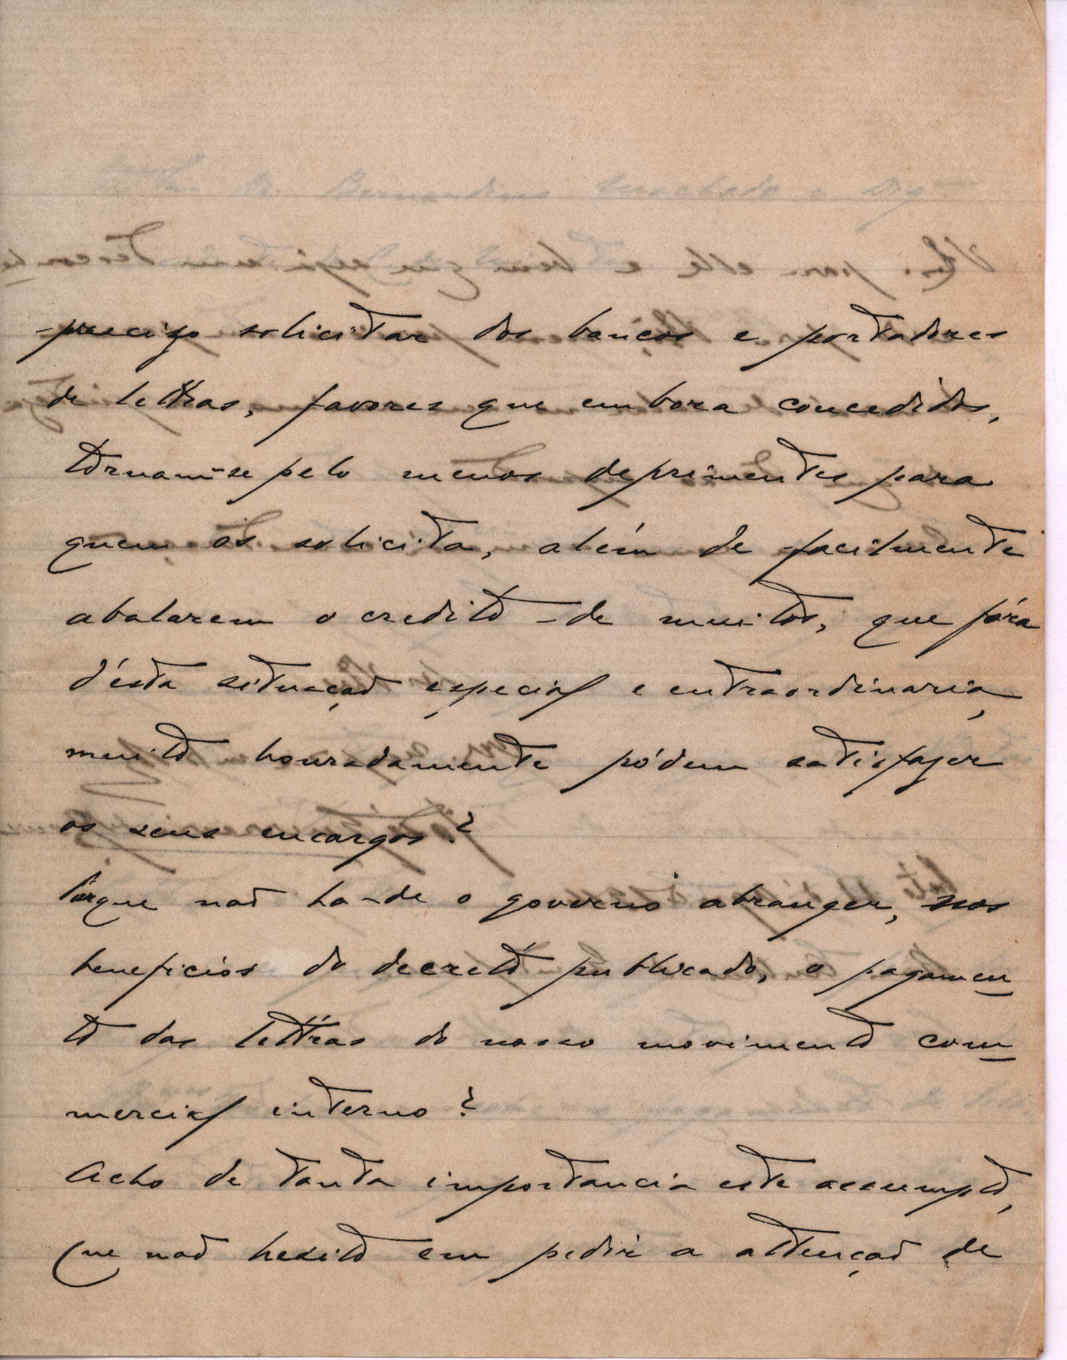 preciso solicitar dos bancos e portadores
de lettras, favores que embora concedidos,
tornam-se pelo menos deprimentes para
quem os solicita, além de facilmente
abalarem o credito de muitos, que fóra
d'ésta situação especial e extraordinaria,
muito honradamente pódem satisfazer
os seus encargos?
Porque não ha-de o governo abranger, nos
beneficios do decreto publicado, o pagamen
to das lettras do nosso movimento com
mercial interno?
Acho de tanta importancia este assumpto,
que não hesito em pedir a attenção de